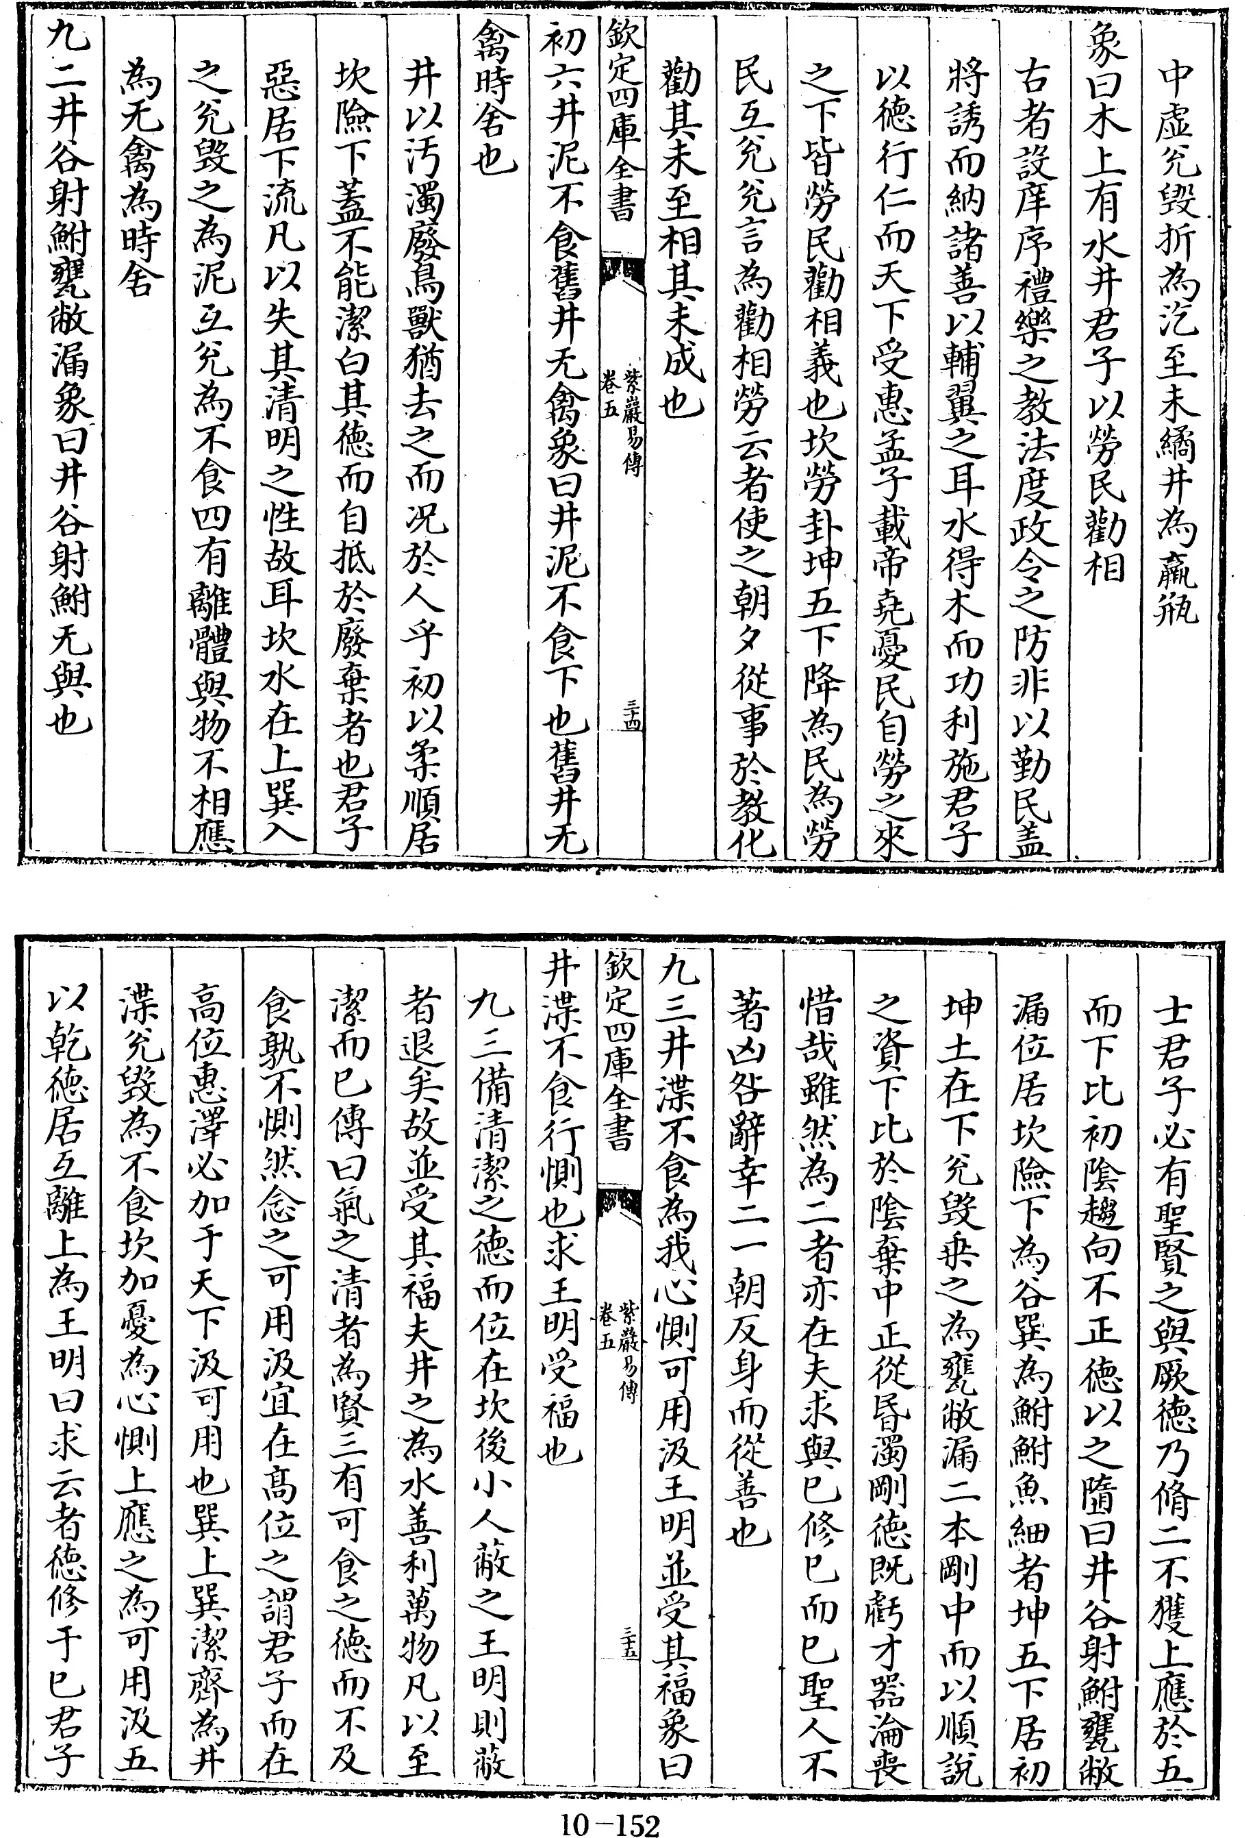 中虛兊毀折為汔至未繘井為羸瓶
象曰木上有水井君子以勞民勸相
古者設庠序禮樂之教法度政令之防非以勤民蓋
將誘而納諸善以輔翼之耳水得木而功利施君子
以德行仁而天下受惠孟子載帝堯憂民自勞之來
之下皆勞民勸相義也坎勞卦坤五下降為民為勞
民互兊兊言為勸相勞云者使之朝夕從事於教化
勸其未至相其未成也
欽定四庫全書
紫巖易傳
卷五
三十四
初六井泥不食舊井无禽象曰井泥不食下也舊井无
禽時舍也
井以汚濁廢鳥獸猶去之而况於人乎初以柔順居
坎險下蓋不能潔白其德而自抵於廢棄者也君子
惡居下流凡以失其清明之性故耳坎水在上巽入
之兊毀之為泥互兊為不食四有離體與物不相應
為无禽為時舍
九二井谷射鮒甕敝漏象曰井谷射鮒无與也
士君子必有聖賢之與厥德乃脩二不獲上應於五
而下比初隂趨向不正德以之隳曰井谷射鮒甕敝
漏位居坎險下為谷巽為鮒鮒魚細者坤五下居初
坤土在下兊毀乗之為甕敝漏二本剛中而以順說
之資下比於隂棄中正從昏濁剛德既虧才器淪喪
惜哉雖然為二者亦在夫求與已修已而已聖人不
著凶咎辭幸二一朝反身而從善也
九三井渫不食為我心惻可用汲王明並受其福象曰
欽定四庫全書
紫巖易傳
卷五
三十五
井渫不食行惻也求王明受福也
九三備清潔之德而位在坎後小人蔽之王明則蔽
者退矣故並受其福夫井之為水善利萬物凡以至
潔而已傳曰氣之清者為賢三有可食之德而不及
食孰不惻然念之可用汲宜在髙位之謂君子而在
高位惠澤必加于天下汲可用也巽上巽潔齊為井
渫兊毀為不食坎加憂為心惻上應之為可用汲五
以乾德居互離上為王明曰求云者德修于已君子
10-152